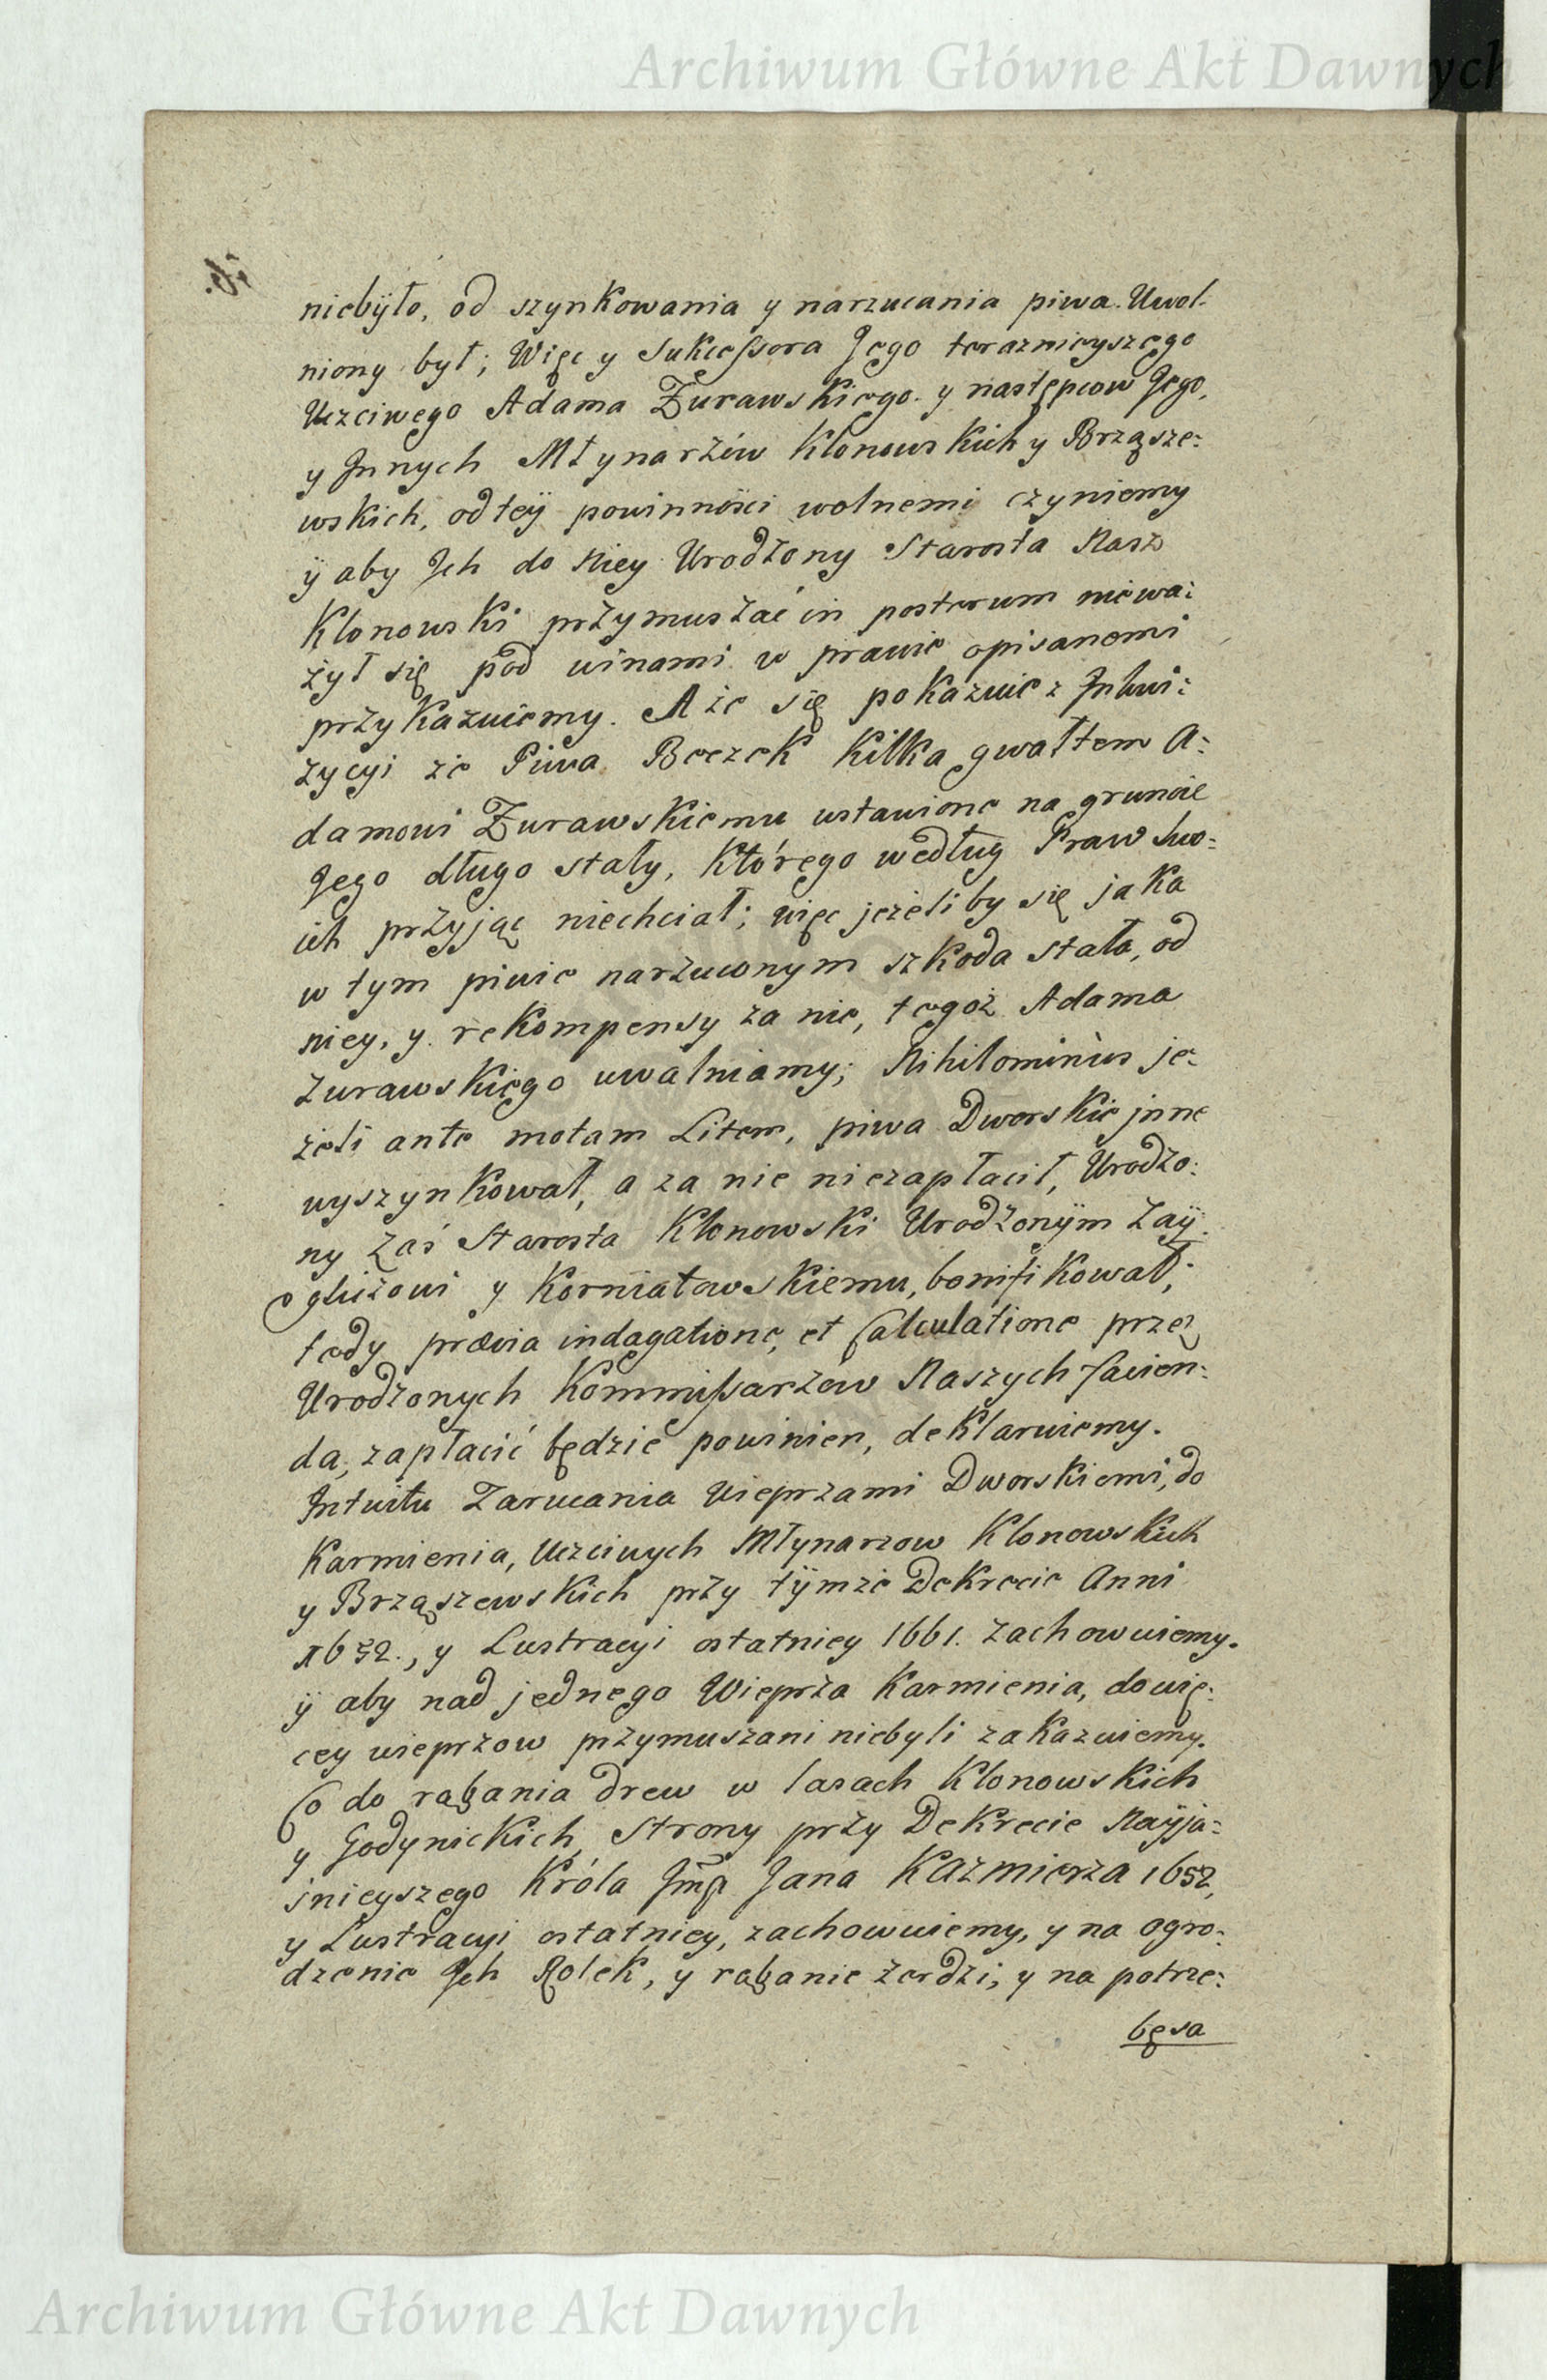 Archiwum Główne Akt Dawnych
niebÿło, od szynkowania y narzucania piwa. Uwol-
niony był; Więc y Sukcessora Jego teraznieyszego
Uczciwego Adama Zurawskiego y następcow Jego,
y Jnnych Młynarzów Klonowskich y Brząsze:
wskich, od teÿ powinności wolnemi czyniemy
ÿ aby Jch do niey Urodzony Starosta Nasz
Klonowski przymuszać in posterum niewa:
żył się pod winami w prawie opisanemi
przykazuiemy. A że się pokazuie z Jnkwi:
zycyi że Piwa Beczek kilka gwałtem A:
damowi Zurawskiemu wstawione na gruncie
Jego długo stały, którego według Praw swo:
ich przyjąc niechciał; więc jeżeliby się jaka
w tym piwie narzuconym szkoda stała, od
niey, y rekompensy za nie, tegoż Adama
Zurawskiego uwalniamy; Nihilominùs je:
żeli ante motam Litem, piwa Dworskie jnne
wyszynkował, a za nie niezapłacił, Urodzo:
ny Zaś Starosta Klonowski Urodzonÿm Zaÿ:
gliżowi y Korniatowskiemu, bonifikował;
tedy prævia indagatione, et Calculatione przez
Urodzonych Kommissarzów Naszych facien:
da, zapłacić będzie powinien, deklaruiemy.
Jntuitu Zarucania Wieprzami Dworskiemi, do
Karmienia, Uczciwych Młynarzow Klonowskich
y Brząszewskich przy tÿmże Dekrecie Anni
1652., y Lustracyi ostatniey 1661. zachowuiemy.
ÿ aby nad jednego Wieprza Karmienia, do wię:
cey wieprzow przymuszani niebyli zakazuiemy.
Co do rąbania drew w lasach Klonowskich
y Godynickich, Strony przy Dekrecie Nayja:
śnieyszego Króla Jmp̃ Jana Kazmierza 1652,
y Lustracyi ostatniey, zachowuiemy, y na ogro:
dzenie Jch Rolek, y rąbanie żerdzi, y na potrze:
bę sa
Archiwum Główne Akt Dawnych